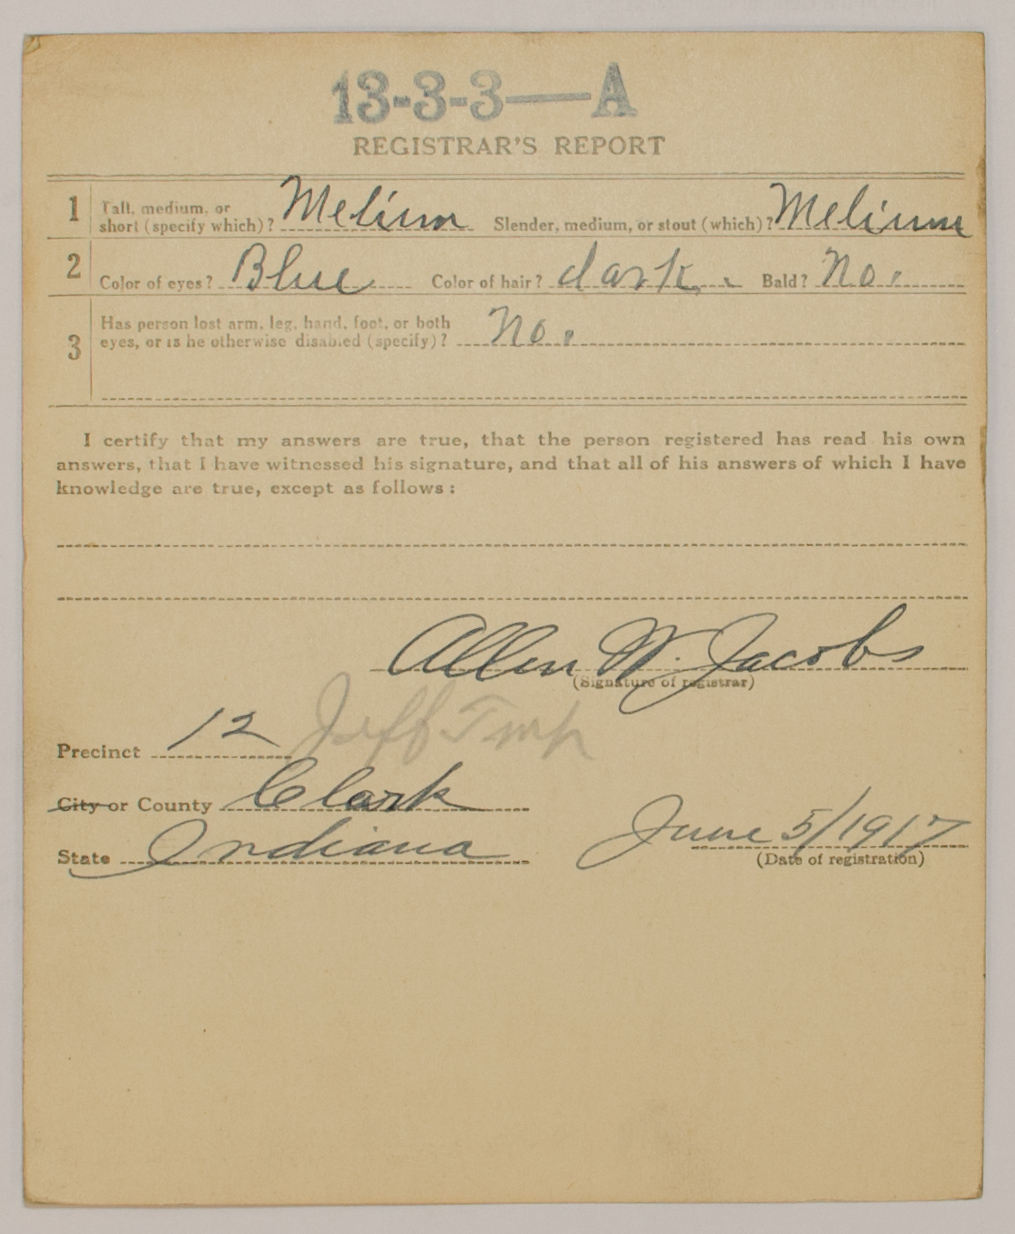 13-3-3—A
REGISTRAR'S REPORT
1 Tall, medium, or short (specify which)? Medium Slender, medium, or stout (which)? Medium
2 Color of eyes? Blue Color of hair? dark. Bald? No.
3 Has person lost arm, leg, hand, foot, or both
eyes, or is he otherwise disabled (specify)? No.
I certify that my answers are true, that the person registered has read his own
answers, that I have witnessed his signature, and that all of his answers of which I have
knowledge are true, except as follows:
Allen W. Jacobs
(Signature of registrar)
Precinct 12 Jeff Twp
City or County Clark
State Indiana June 5/1917
(Date of registration)